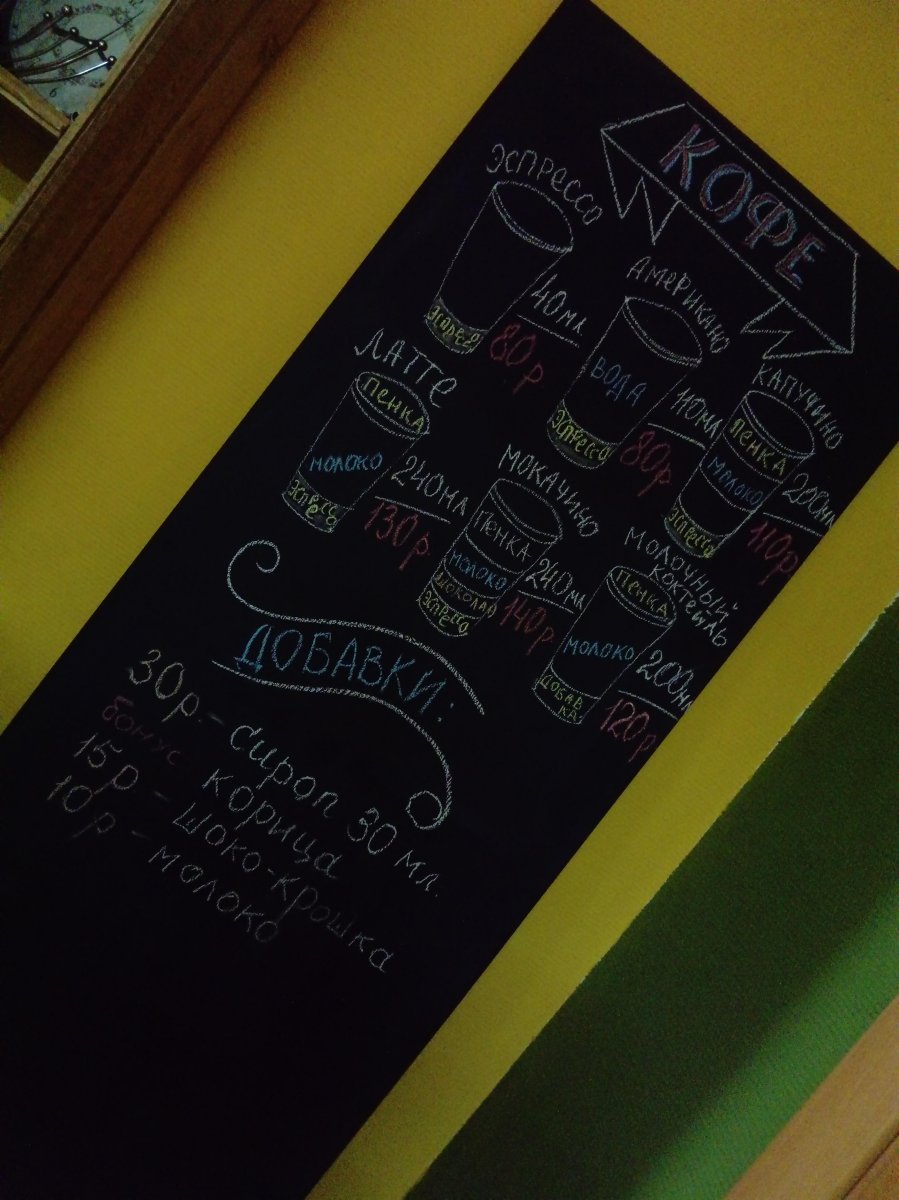 КОФЕ
ЭСПРЕССО
ЭСПРЕССО
40мл
80р
АМЕРИКАНО
ВОДА
ЭСПРЕССО
110мл
80р
КАПУЧЧИНО
ПЕНКА
МОЛОКО
ЭСПРЕССО
200мл
110р
ЛАТТЕ
ПЕНКА
МОЛОКО
ЭСПРЕССО
240мл
130р
МОКАЧИНО
ПЕНКА
МОЛОКО
ШОКОЛАД
ЭСПРЕССО
240мл
140р
МОЛОЧНЫЙ
КОКТЕЙЛЬ
ПЕНКА
МОЛОКО
ДОБАВ
КА
200мл
120р
ДОБАВКИ:
30р. - сироп 30 мл.
бонус корица
15р - шоко-крошка
10р - молоко